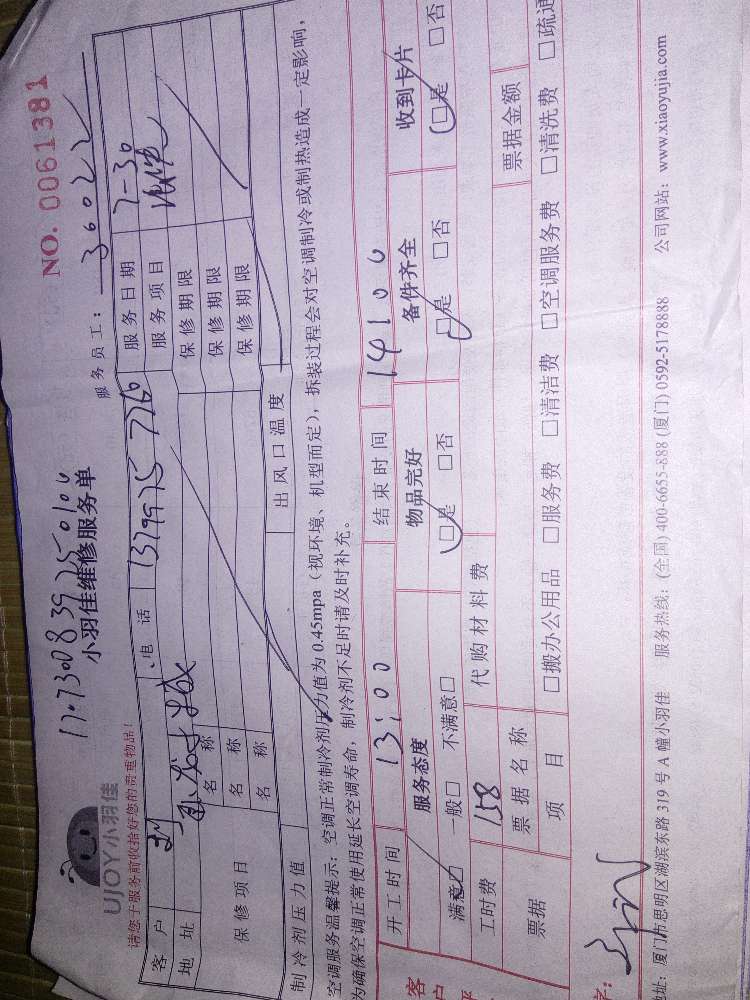 NO. 0061381
UJOY小羽佳
小羽佳维修服务单
服务员工: 36022
请您于服务前收拾好您的贵重物品!
客户 电话 服务日期 7-30
地址 服务项目
保修项目 名称 保修期限
名称 保修期限
名称 保修期限
制冷剂压力值 出风口温度
空调服务温馨提示: 空调正常制冷剂压力值为 0.45mpa (视环境、机型而定), 拆装过程会对空调制冷或制热造成一定影响,
为确保空调正常使用延长空调寿命, 制冷剂不足时请及时补充。
开工时间 13:00 结束时间 14:00
服务态度 物品完好 备件齐全 收到卡片
满意□ 一般□ 不满意□ □是 □否 □是 □否 □是 □否
工时费 158 代购材料费
票据 票据名称 票据金额
项目 □搬办公用品 □服务费 □清洁费 □空调服务费 □清洗费 □疏通
字:
址: 厦门市思明区湖滨东路 319 号 A 幢小羽佳 服务热线: (全国) 400-6655-888 (厦门) 0592-5178888 公司网站: www.xiaoyujia.com